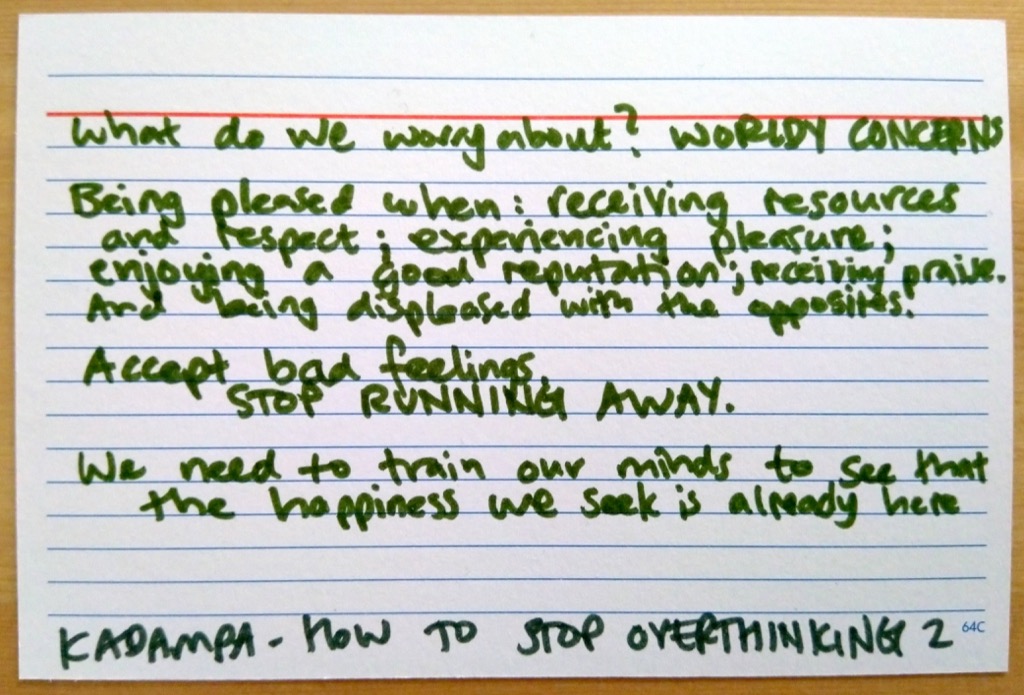 What do we worry about? WORLDY CONCERNS
Being pleased when: receiving resources
and respect; experiencing pleasure;
enjoying a good reputation; receiving praise.
And being displeased with the opposites.
Accept bad feelings.
STOP RUNNING AWAY.
We need to train our minds to see that
the happiness we seek is already here
KADAMPA - HOW TO STOP OVERTHINKING 2
64C